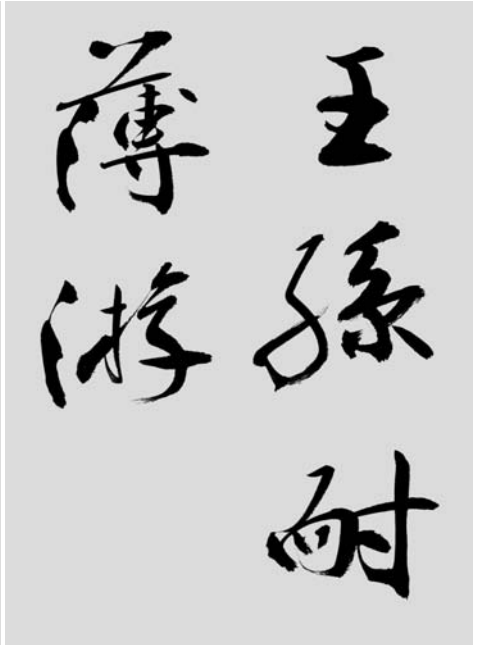 王孫耐
薄游